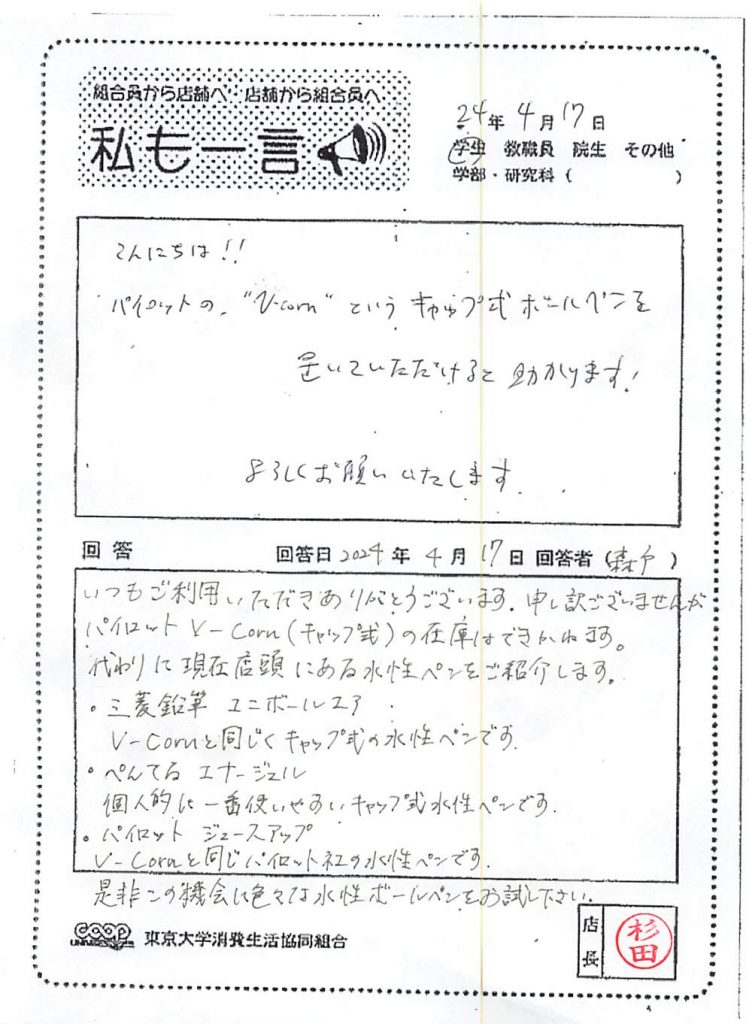 組合員から店舗へ 店舗から組合員へ
私も一言
24年4月17日
学生 教職員 院生 その他
学部・研究科( )
こんにちは!!
パイロットの、"V-corn" という キャップ式 ボールペンを
置いていただけると 助かります!
よろしくお願いいたします。
回答 回答日 2024年 4月 17日 回答者(森戸)
いつもご利用いただきありがとうございます。申し訳ございませんが
パイロット V-Corn(キャップ式)の在庫はできかねます。
代わりに現在店頭にある水性ペンをご紹介します。
・三菱鉛筆 ユニボールエア
V-Cornと同じくキャップ式の水性ペンです。
・ぺんてる エナージェル
個人的に一番使いやすいキャップ式水性ペンです。
・パイロット ジュースアップ
V-Cornと同じパイロット社の水性ペンです。
是非この機会に色々な水性ボールペンをお試し下さい。
coop
UNIVERSITY
東京大学消費生活協同組合
店長
杉田